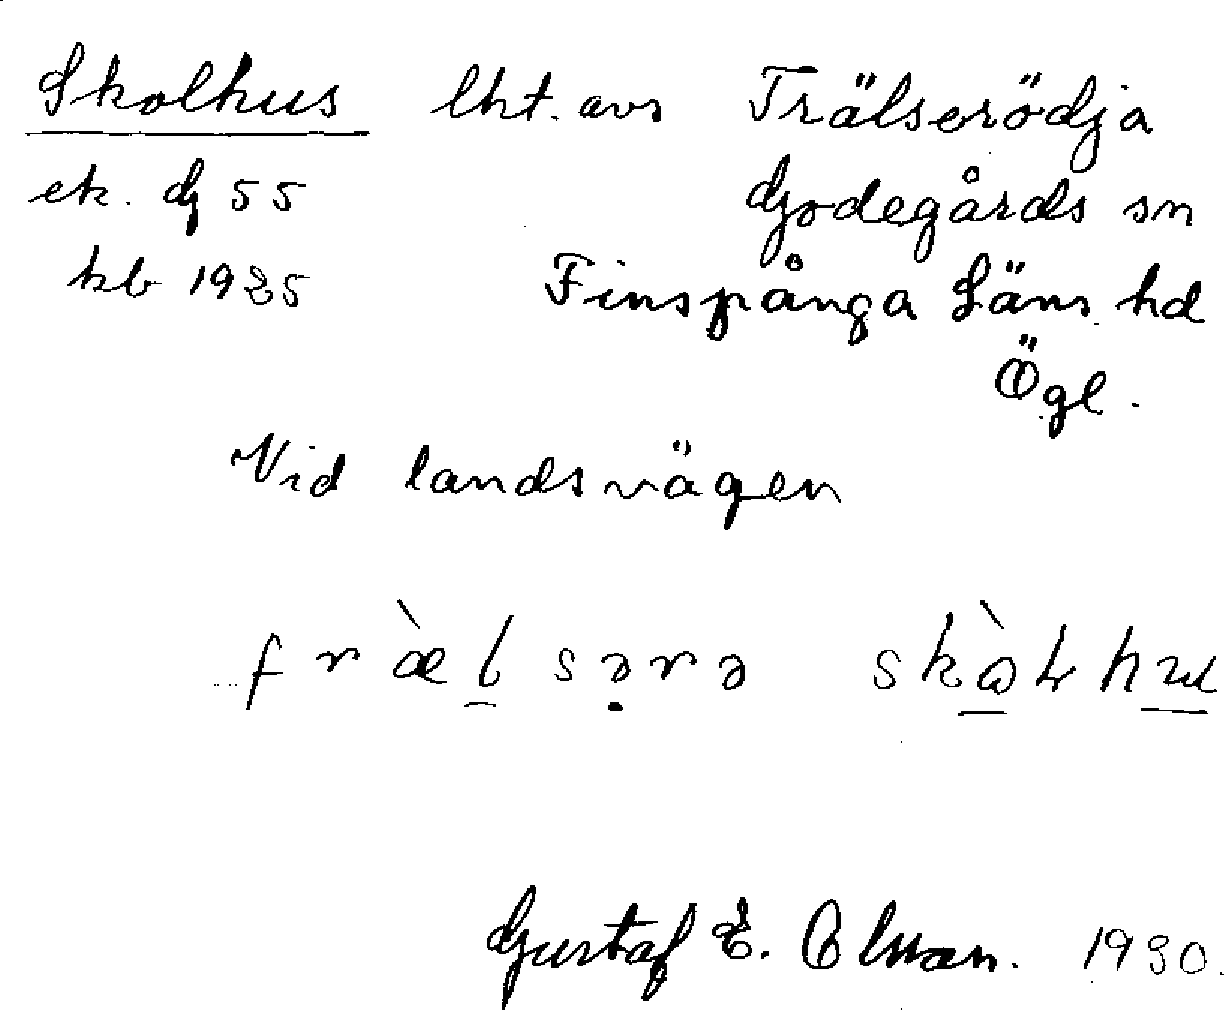 Skolhus lht. avs Trälserödja
ek. G 55 Godegårds sn
kb 1925 Finspånga Läns hd
Ögl.
Vid landsvägen
fræ̀lsərə
Gustaf E. 1930.